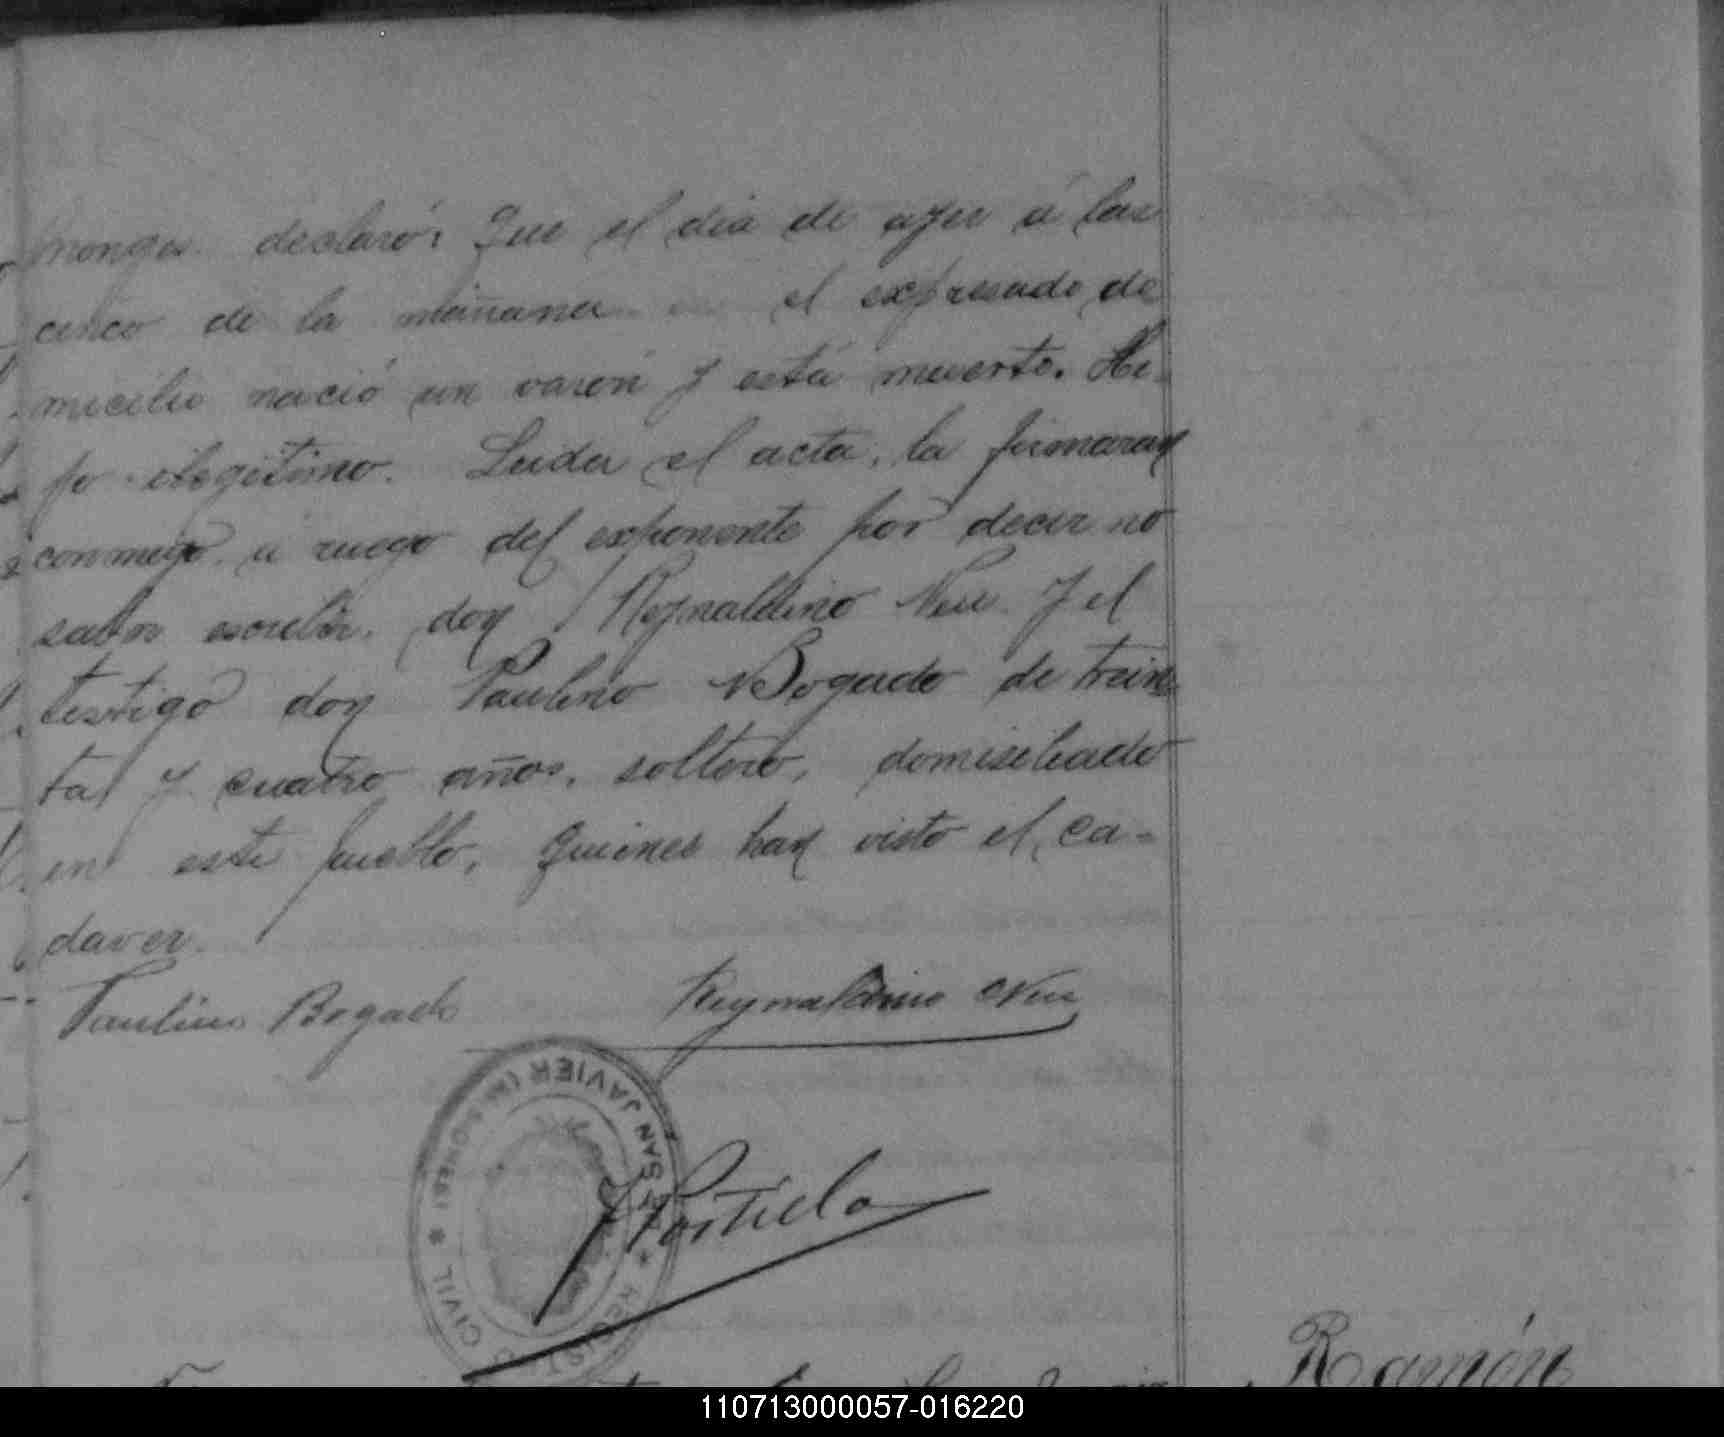 monges. declaró: Que el dia de ayer á las
cinco de la mañana en el expresado do
micilio nació un varón y está muerto. Hi-
jo ilegitimo. Leida el acta, la firmaran
conmigo, á ruego del exponente por decir no
saber escribir, don Reynaldino Neu y el
testigo don Paulino Bogado de trein
ta y cuatro años, soltero, domiciliado
en este pueblo, quienes han visto el ca-
daver.
Paulino Bogado Reynaldino Neu
SAN JAVIER (MISIONES) * REGISTRO CIVIL *
Portillo
Ramón
110713000057-016220